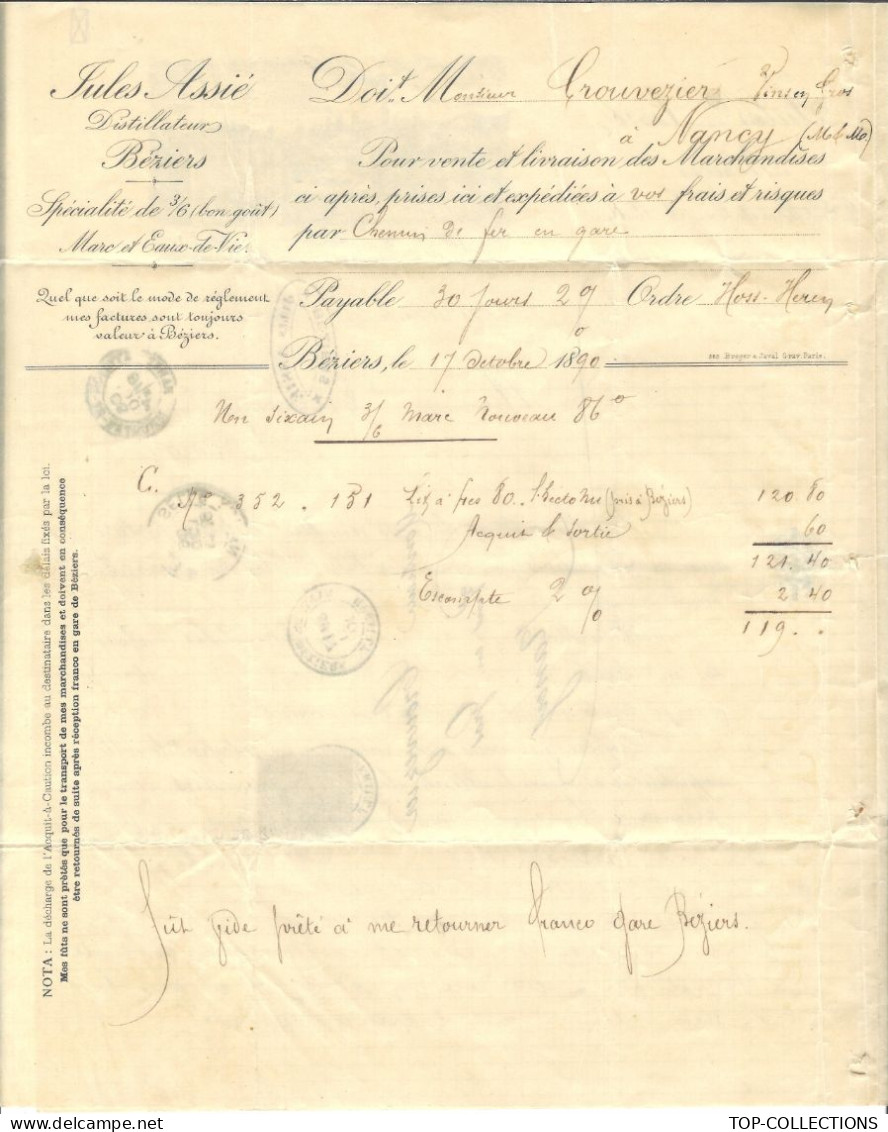 Jules Assié
Distillateur
Béziers
Spécialité de 3/6 (bon goût)
Marc et Eaux-de-Vie.
Quel que soit le mode de règlement
mes factures sont toujours
valeur à Béziers.
Doit Monsieur Crouvezier
à Nancy (M & M)
Pour vente et livraison des Marchandises
ci après, prises ici et expédiées à vos frais et risques
par Chemin de fer en gare
Payable 30 Jours 2 % Ordre
Béziers, le 17 Octobre 1890
Imp. Rouger & Javal Grav. Paris.
3/6 Marc Nouveau 86°
C. No 352 . 151 80 l'hecto nu (pris à Béziers) 120 80
Acquit & Sortie 60
121. 40
Escompte 2 % 2 40
119 . .
Fût vide prêté à me retourner franco gare Béziers.
NOTA : La décharge de l'Acquit-à-Caution incombe au destinataire dans les délais fixés par la loi.
Mes fûts ne sont prêtés que pour le transport de mes marchandises et doivent en conséquence
être retournés de suite après réception franco en gare de Béziers.
TOP-COLLECTIONS